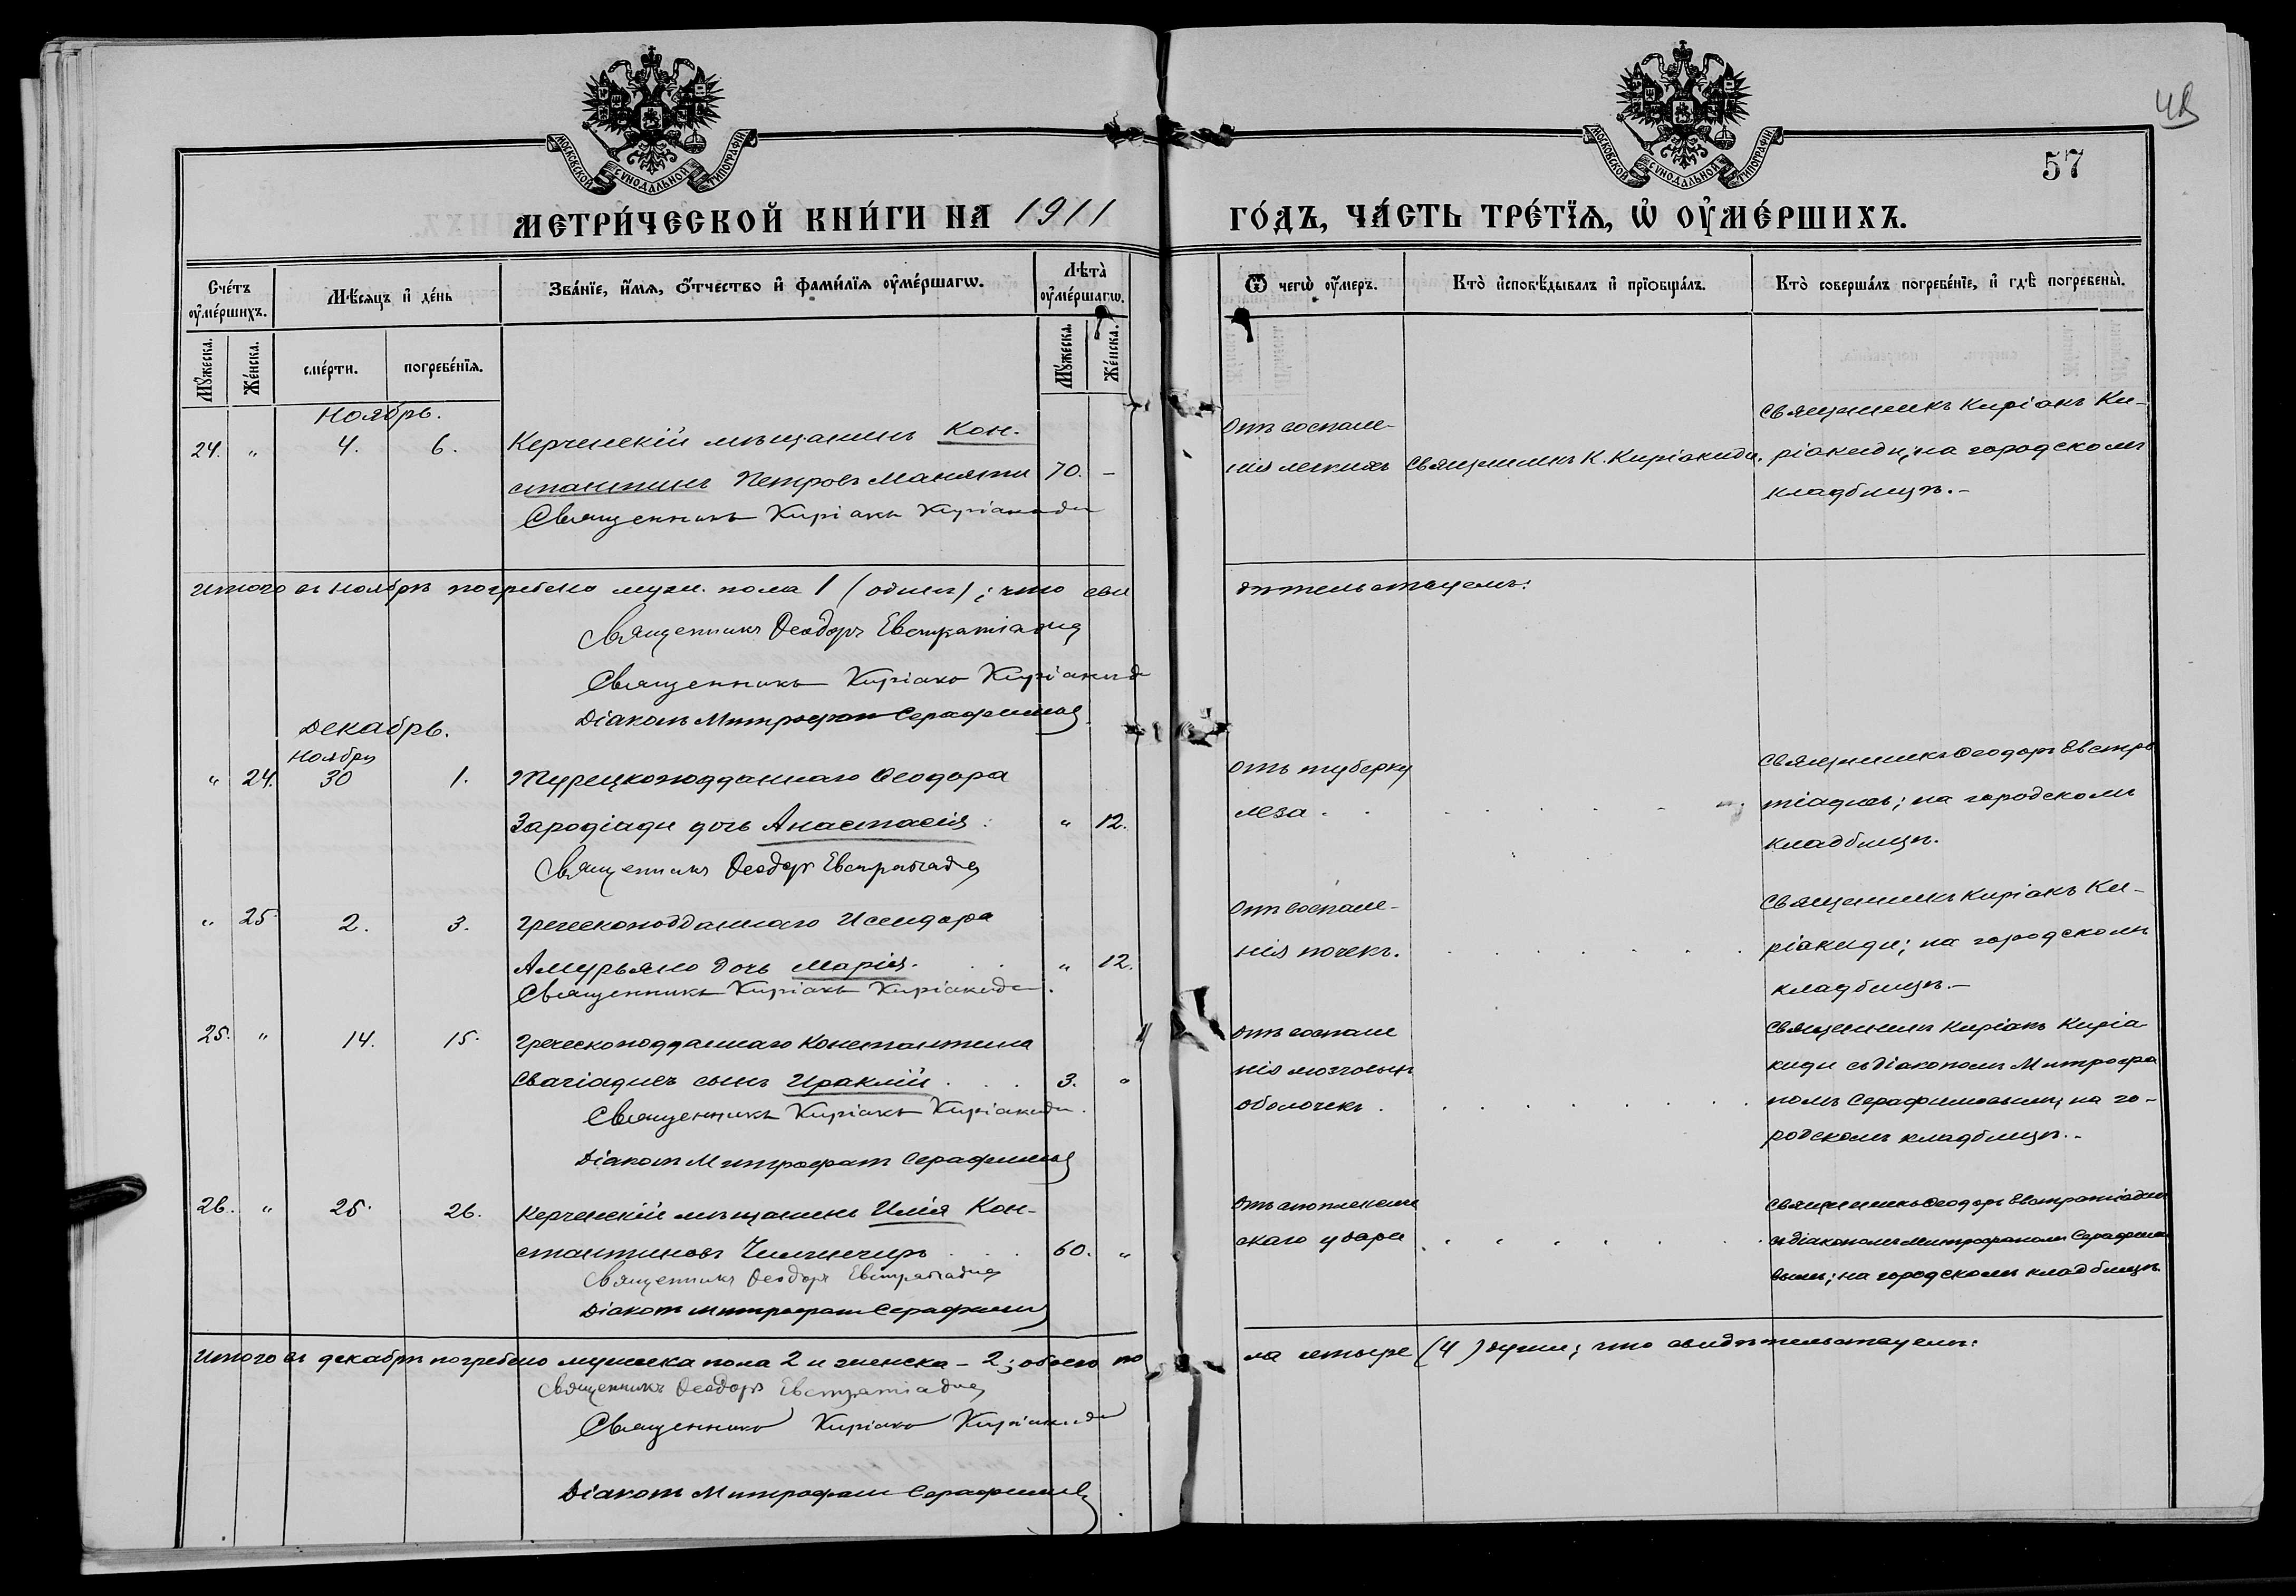 МОСКОВСКОЙ СѴНОДАЛЬНОЙ ТИПОГРАФІИ
МОСКОВСКОЙ СѴНОДАЛЬНОЙ ТИПОГРАФІИ
57
МЕТРИ́ЧЕСКОЙ КНИ́ГИ НА 1911 ГО́ДЪ, ЧА́СТЬ ТРЕ́ТЇѦ, Ѡ҆ ОУ҆МЕ́РШИХЪ.
Сче́тъ оу҆ме́ршихъ.
Мѣ́сѧцъ и҆ де́нь
Зва́нїе, и҆́мѧ, ѻ҆́тчество и҆ фами́лїѧ оу҆ме́ршагѡ.
Лѣ́та оу҆ме́ршагѡ.
Ѿ чегѡ̀ оу҆́меръ.
Кто̀ и҆сповѣ́дывалъ и҆ прїѡбща́лъ.
Кто̀ соверша́лъ погребе́нїе, и҆ гдѣ̀ погребены̀.
Мꙋ́жеска.
Же́нска.
сме́рти.
погребе́нїѧ.
Мꙋ́жеска.
Же́нска.
Ноябрь.
24. " 4. 6. Керченскій мѣщанинъ Кон-
стантинъ Петровъ Маняти 70. -
Священникъ Киріакъ Киріакиди
Отъ воспале-
нія легкихъ
Священникъ К. Киріакиди.
Священникъ Киріакъ Ки-
ріакиди; на городскомъ
кладбищѣ.-
Итого въ ноябрѣ погребено муж. пола 1 (одинъ); что сви
дѣтельствуемъ:
Священникъ Ѳеодоръ Евстратіадис
Священникъ Киріакъ Киріакиди
Діаконъ Митрофан Серафимов
Декабрь.
Ноября
" 24. 30 1. Турецкоподданнаго Ѳеодора
Зародіади дочь Анастасія. " 12.
Священникъ Ѳеодоръ Евстратіадис
Отъ туберку
леза
Священникъ Ѳеодоръ Евстра
тіадисъ; на городскомъ
кладбищѣ.
" 25 2. 3. Греческоподданнаго Исидора
Амурьяно дочь Марія. " 12.
Священникъ Киріакъ Киріакиди.
Отъ воспале-
нія почекъ.
Священникъ Киріакъ Ки-
ріакиди; на городскомъ
кладбищѣ.-
25. " 14. 15. Греческоподданнаго Константина
Свачіадисъ сынъ Ираклій 3. "
Священникъ Киріакъ Киріакиди.
Діаконъ Митрофанъ Серафимов
Отъ воспале
нія мозговыхъ
оболочекъ
Священникъ Киріакъ Киріа
киди съ діакономъ Митрофа
номъ Серафимовымъ; на го-
родскомъ кладбищѣ.-
26. " 25. 26. Керченскій мѣщанинъ Илія Кон-
стантиновъ Чилингиръ 60. "
Священникъ Ѳеодоръ Евстратіадис
Діаконъ Митрофанъ Серафимов
Отъ апоплексиче
скаго удара
Священникъ Ѳеодоръ Евстратіадисъ
съ діакономъ Митрофаномъ Серафимо
вымъ; на городскомъ кладбищѣ.
Итого въ декабрѣ погребено мужеска пола 2 и женска - 2; обоего по
ла четыре (4) души; что свидѣтельствуемъ:
Священникъ Ѳеодоръ Евстратіадис
Священникъ Киріакъ Киріакиди
Діаконъ Митрофан Серафимов